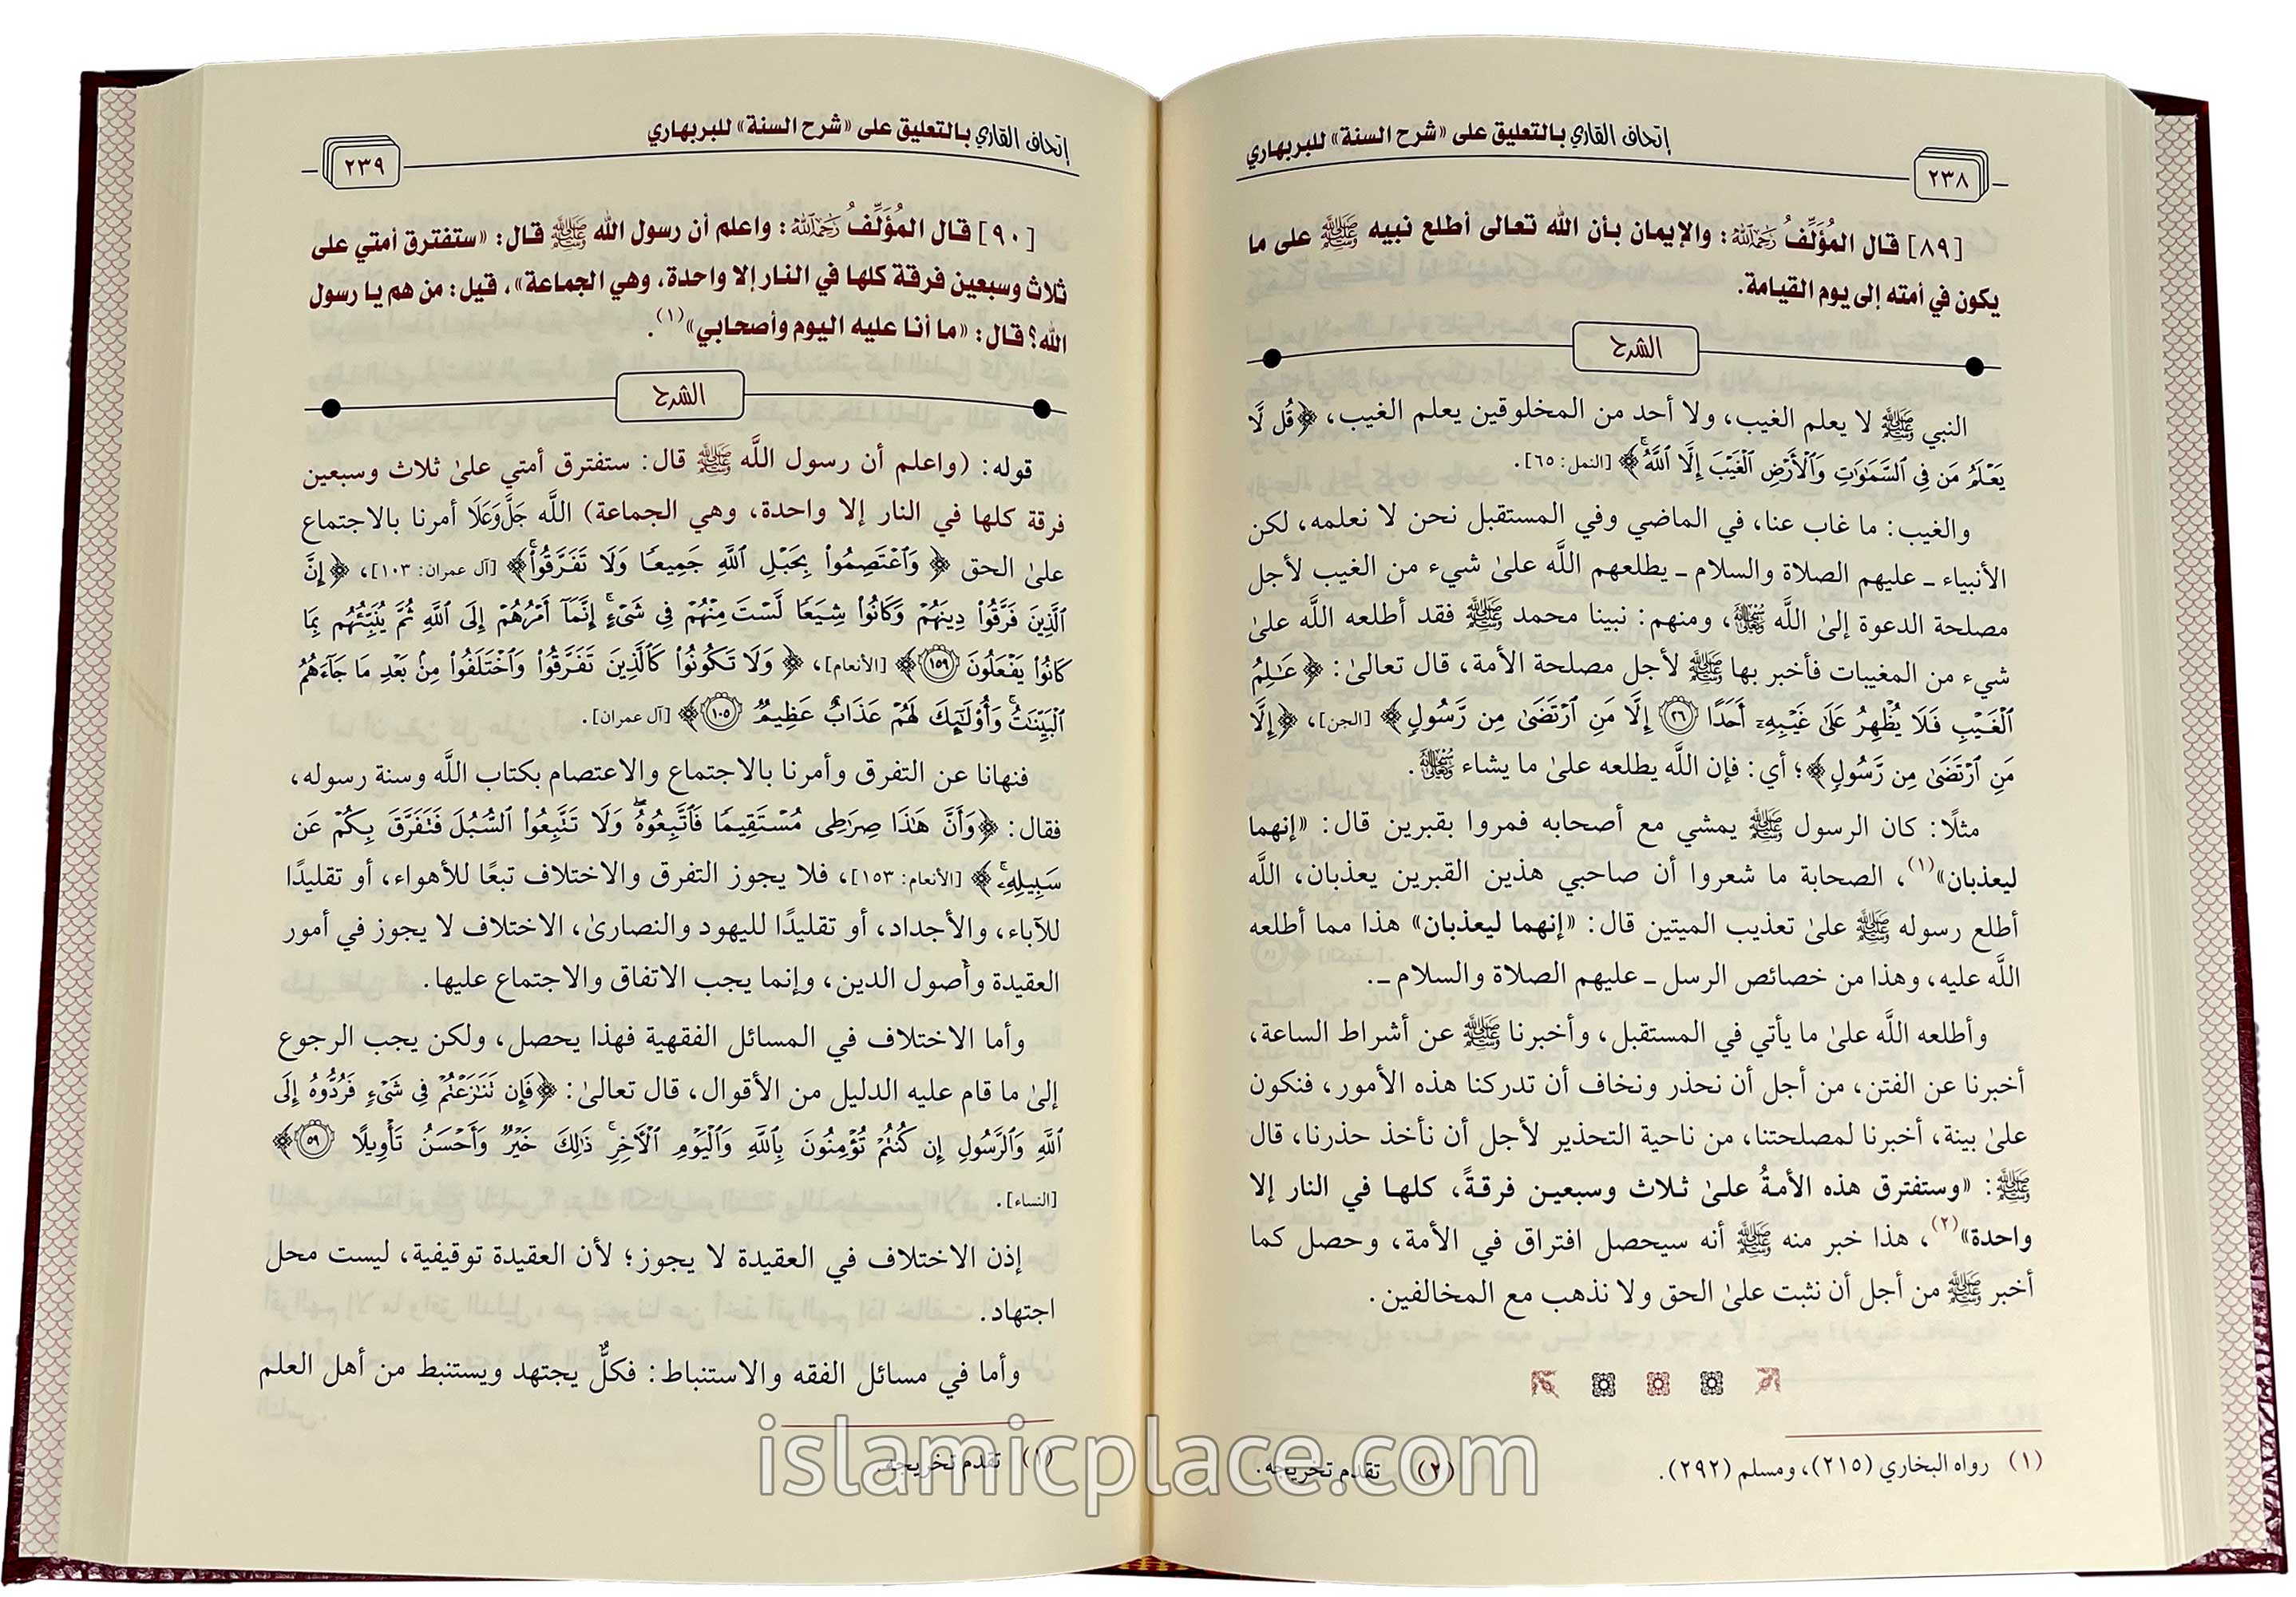 إتحاف القاري بالتعليق على «شرح السنة» للبربهاري
٢٣٨
[٨٩] قال المُؤَلِّفُ رَحِمَهُ ٱللَّهُ: والإيمان بأن الله تعالى أطلع نبيه ﷺ على ما
يكون في أمته إلى يوم القيامة.
الشرح
النبي ﷺ لا يعلم الغيب، ولا أحد من المخلوقين يعلم الغيب، ﴿قُل لَّا
يَعْلَمُ مَن فِي ٱلسَّمَٰوَٰتِ وَٱلْأَرْضِ ٱلْغَيْبَ إِلَّا ٱللَّهُ﴾ [النمل: ٦٥].
والغيب: ما غاب عنا، في الماضي وفي المستقبل نحن لا نعلمه، لكن
الأنبياء ـ عليهم الصلاة والسلام ـ يطلعهم اللَّه علىٰ شيء من الغيب لأجل
مصلحة الدعوة إلىٰ اللَّه سُبْحَانَهُ وَتَعَالَى، ومنهم: نبينا محمد ﷺ فقد أطلعه اللَّه علىٰ
شيء من المغيبات فأخبر بها ﷺ لأجل مصلحة الأمة، قال تعالىٰ: ﴿عَٰلِمُ
ٱلْغَيْبِ فَلَا يُظْهِرُ عَلَىٰ غَيْبِهِۦٓ أَحَدًا ٢٦ إِلَّا مَنِ ٱرْتَضَىٰ مِن رَّسُولٍ﴾ [الجن]، ﴿إِلَّا
مَنِ ٱرْتَضَىٰ مِن رَّسُولٍ﴾؛ أي: فإن اللَّه يطلعه علىٰ ما يشاء سُبْحَانَهُ وَتَعَالَى.
مثلًا: كان الرسول ﷺ يمشي مع أصحابه فمروا بقبرين قال: «إنهما
ليعذبان»(١)، الصحابة ما شعروا أن صاحبي هذين القبرين يعذبان، اللَّه
أطلع رسوله ﷺ علىٰ تعذيب الميتين قال: «إنهما ليعذبان» هذا مما أطلعه
اللَّه عليه، وهذا من خصائص الرسل ـ عليهم الصلاة والسلام ـ.
وأطلعه اللَّه علىٰ ما يأتي في المستقبل، وأخبرنا ﷺ عن أشراط الساعة،
أخبرنا عن الفتن، من أجل أن نحذر ونخاف أن تدركنا هذه الأمور، فنكون
علىٰ بينة، أخبرنا لمصلحتنا، من ناحية التحذير لأجل أن نأخذ حذرنا، قال
ﷺ: «وستفترق هذه الأمةُ علىٰ ثلاث وسبعين فرقةً، كلها في النار إلا
واحدة»(٢)، هذا خبر منه ﷺ أنه سيحصل افتراق في الأمة، وحصل كما
أخبر ﷺ من أجل أن نثبت علىٰ الحق ولا نذهب مع المخالفين.
(١) رواه البخاري (٢١٥)، ومسلم (٢٩٢). (٢) تقدم تخريجه.
إتحاف القاري بالتعليق على «شرح السنة» للبربهاري
٢٣٩
[٩٠] قال المُؤَلِّفُ رَحِمَهُ ٱللَّهُ: واعلم أن رسول الله ﷺ قال: «ستفترق أمتي على
ثلاث وسبعين فرقة كلها في النار إلا واحدة، وهي الجماعة»، قيل: من هم يا رسول
الله؟ قال: «ما أنا عليه اليوم وأصحابي»(١).
الشرح
قوله: (واعلم أن رسول اللَّه ﷺ قال: ستفترق أمتي علىٰ ثلاث وسبعين
فرقة كلها في النار إلا واحدة، وهي الجماعة) اللَّه جَلَّوَعَلَا أمرنا بالاجتماع
علىٰ الحق ﴿وَٱعْتَصِمُوا۟ بِحَبْلِ ٱللَّهِ جَمِيعًا وَلَا تَفَرَّقُوا۟﴾ [آل عمران: ١٠٣]، ﴿إِنَّ
ٱلَّذِينَ فَرَّقُوا۟ دِينَهُمْ وَكَانُوا۟ شِيَعًا لَّسْتَ مِنْهُمْ فِي شَيْءٍ إِنَّمَآ أَمْرُهُمْ إِلَى ٱللَّهِ ثُمَّ يُنَبِّئُهُم بِمَا
كَانُوا۟ يَفْعَلُونَ ١٥٩﴾ [الأنعام]، ﴿وَلَا تَكُونُوا۟ كَٱلَّذِينَ تَفَرَّقُوا۟ وَٱخْتَلَفُوا۟ مِنۢ بَعْدِ مَا جَآءَهُمُ
ٱلْبَيِّنَٰتُ وَأُو۟لَٰٓئِكَ لَهُمْ عَذَابٌ عَظِيمٌ ١٠٥﴾ [آل عمران].
فنهانا عن التفرق وأمرنا بالاجتماع والاعتصام بكتاب اللَّه وسنة رسوله،
فقال: ﴿وَأَنَّ هَٰذَا صِرَٰطِي مُسْتَقِيمًا فَٱتَّبِعُوهُ وَلَا تَتَّبِعُوا۟ ٱلسُّبُلَ فَتَفَرَّقَ بِكُمْ عَن
سَبِيلِهِۦ﴾ [الأنعام: ١٥٣]، فلا يجوز التفرق والاختلاف تبعًا للأهواء، أو تقليدًا
للآباء، والأجداد، أو تقليدًا لليهود والنصارىٰ، الاختلاف لا يجوز في أمور
العقيدة وأصول الدين، وإنما يجب الاتفاق والاجتماع عليها.
وأما الاختلاف في المسائل الفقهية فهذا يحصل، ولكن يجب الرجوع
إلىٰ ما قام عليه الدليل من الأقوال، قال تعالىٰ: ﴿فَإِن تَنَٰزَعْتُمْ فِي شَيْءٍ فَرُدُّوهُ إِلَى
ٱللَّهِ وَٱلرَّسُولِ إِن كُنتُمْ تُؤْمِنُونَ بِٱللَّهِ وَٱلْيَوْمِ ٱلْءَاخِرِ ذَٰلِكَ خَيْرٌ وَأَحْسَنُ تَأْوِيلًا ٥٩﴾
[النساء].
إذن الاختلاف في العقيدة لا يجوز؛ لأن العقيدة توقيفية، ليست محل
اجتهاد.
وأما في مسائل الفقه والاستنباط: فكلٌّ يجتهد ويستنبط من أهل العلم
(١) تقدم تخريجه.
islamicplace.com